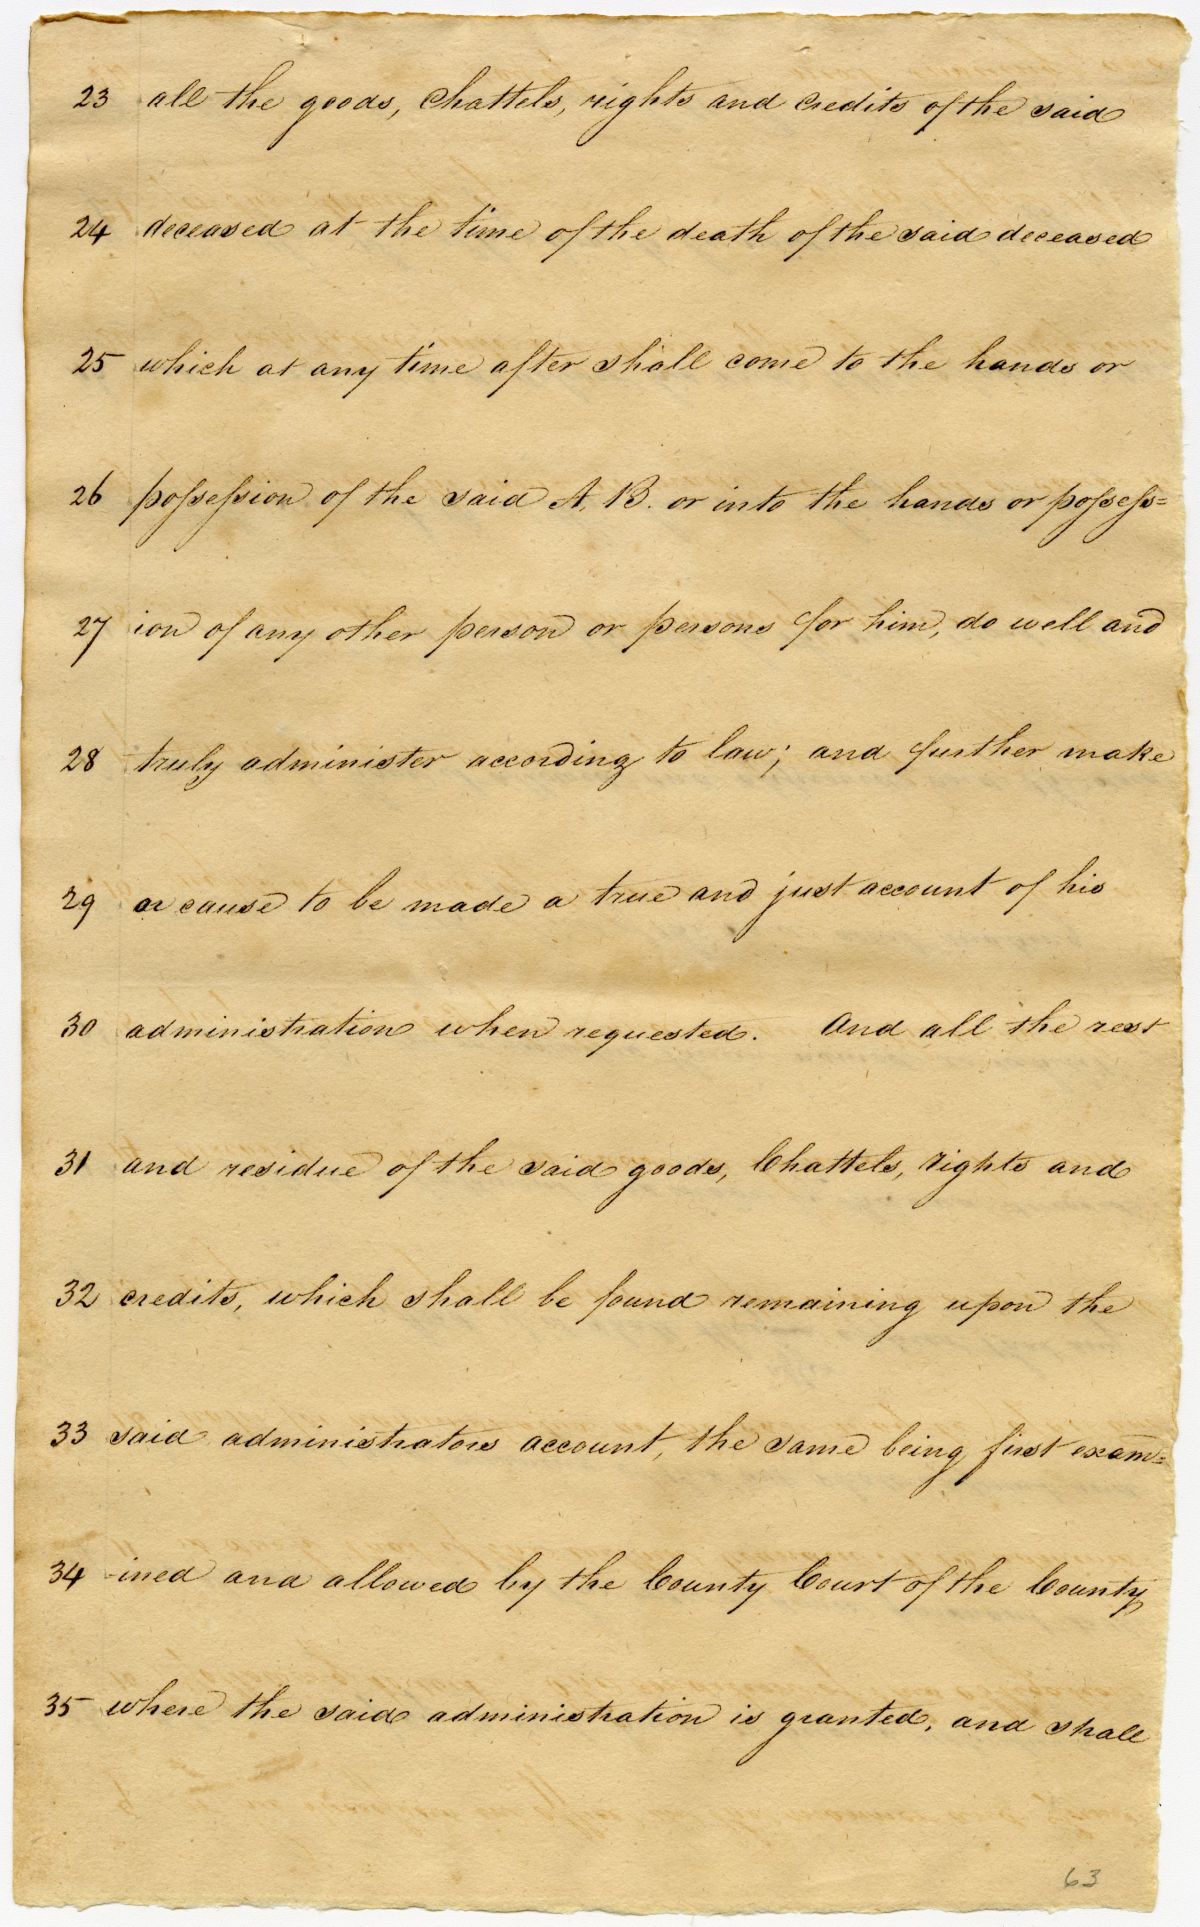 23 all the goods, Chattels, rights and Credits of the said
24 deceased at the time of the death of the said deceased
25 which at any time after shall come to the hands or
26 possession of the said A. B. or into the hands or possess=
27 ion of any other person or persons for him, do well and
28 truly administer according to law; and further make
29 or cause to be made a true and just account of his
30 administration when requested. And all the rest
31 and residue of the said goods, Chattels, rights and
32 credits, which shall be found remaining upon the
33 said administrators account, the same being first exam=
34 -ined and allowed by the County Court of the County
35 where the said administration is granted, and shall
63